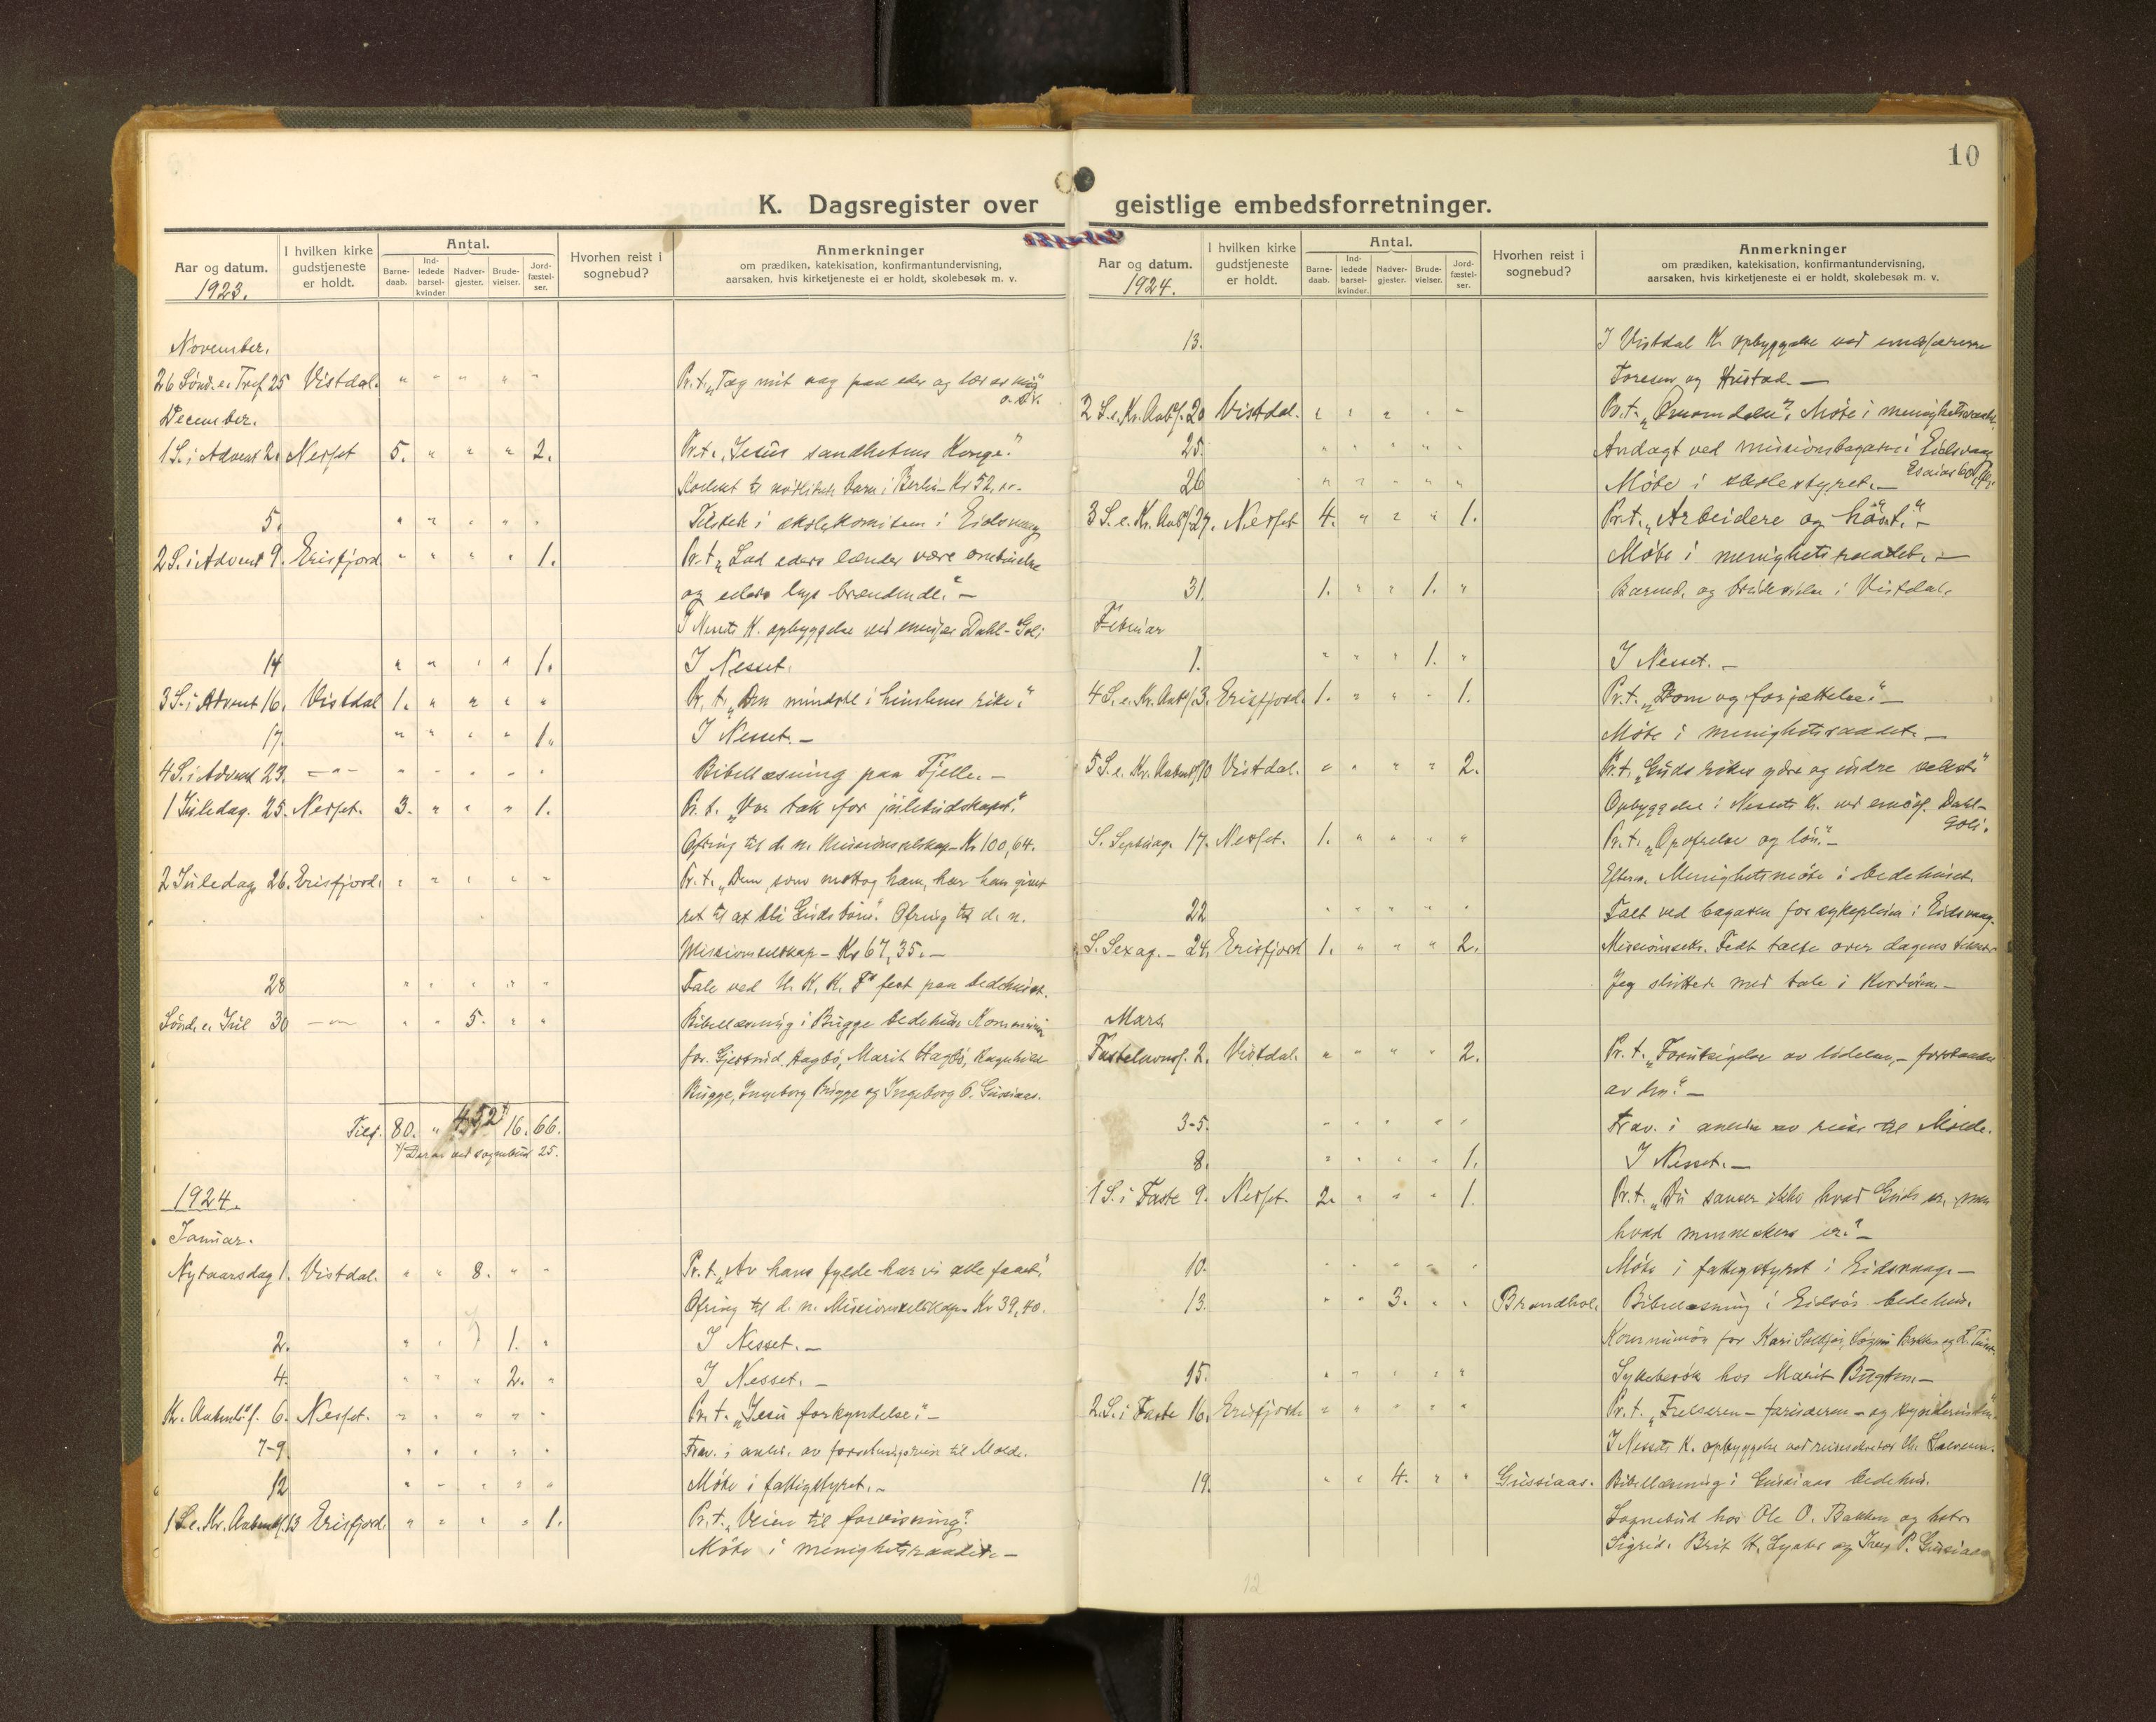 10
K. Dagsregister over geistlige embedsforretninger.
Aar og datum.
1923.
I hvilken kirke gudstjeneste er holdt.
Antal.
Barne-daab.
Ind-ledede barsel-kvinder
Nadver-gjester.
Brude-vielser.
Jord-fæstel-ser.
Hvorhen reist i sognebud?
Anmerkninger
om prædiken, katekisation, konfirmantundervisning,
aarsaken, hvis kirketjeneste ei er holdt, skolebesøk m. v.
November.
26 Sönd. e. Tref. 25 Vistdal. " " " " " Pr. t. „Tag mit aag paa eder og lær av mig"
o. s. v.
December.
1 S. i Advent 2. Nesset 5. " " " 2. Pr. t. „Jesus sandhetens Konge."
Kollekt til nödlidende barn i Berlin - Kr 52,
5. " " " " " Tilstede i skolekomiteen i Eidsvaag
2 S. i Advent 9. Erisfjord " " " " 1. Pr. t. „Lad eders lænder være ombundne
og eders lys brændende." -
I Nessets K. opbyggelse ved Dahl-Goli
14 " " " " 1. I Nesset.
3 S. i Advent 16. Vistdal 1. " " " " Pr. t. „Den mindste i himlenes rike."
17. " " " " 1. I Nesset. -
4 S. i Advent 23. - " - " " " " " Bibellæsning paa Fjelle. -
1 Juledag. 25. Nesset. 3. " " " 1. Pr. t. „Vor tak for julebudskapet."
Ofring til d. n. Missionsselskap - Kr 100,64.
2 Juledag 26. Erisfjord. " " " " " Pr. t. „Dem, som mottog ham, har han givet
ret til at bli Guds börn". Ofring til d. n.
Missionsselskap - Kr 67,35. -
28 " " " " " Tale ved U. K. K. F fest paa bedehuset.
Sönd. e. Jul 30 - " - " " 5. " " Bibellæsning i Bugge bedehus. Kommunion
for. Gjertrud Hagbö, Marit Hagbö, Ragnhild
Bugge, Ingeborg Bugge og Ingeborg P. Gussiaas.
Tils. 80. " 452 16. 66.
Derav ved sognebud 25.
1924.
Januar.
Nytaarsdag 1. Vistdal. " " 8. " " Pr. t. „Av hans fylde har vi alle faaet"
Ofring til d. n. Missionsselskap - Kr 39,40.
2. " " " 1. " I Nesset. -
4. " " " 2. " I Nesset. -
Kr. Aabenb.f. 6. Nesset. " " " " " Pr. t. „Jesu forkyndelse." -
7-9. " " " " " Frav. i anled. av forretningsreise til Molde.
12 " " " " " Møte i fattigstyret. -
1 S. e. Kr. Aabenb.f. 13 Erisfjord. " " " " 1. Pr. t. „Veien til forvisning".
Møte i menighetsraadet. -
Aar og datum.
1924.
I hvilken kirke gudstjeneste er holdt.
Antal.
Barne-daab.
Ind-ledede barsel-kvinder.
Nadver-gjester.
Brude-vielser.
Jord-fæstel-ser.
Hvorhen reist i sognebud?
Anmerkninger
om prædiken, katekisation, konfirmantundervisning,
aarsaken, hvis kirketjeneste ei er holdt, skolebesøk m. v.
13. I Vistdal K. opbyggelse ved
Toresen og Hustad. -
2 S. e. Kr. Aab.f. 20 Vistdal. " " " " " Pr. t. Møte i menighetsraadet.
25. " " " " " Andagt ved missionsbasaren i Eidsvaag
Esaias 60
26 " " " " " Møte i skolestyret. -
3 S. e. Kr. Aab.f. 27. Nesset 4. " " " 1. Pr. t. „Arbeidere og høst." -
Møte i menighetsraadet. -
31. 1. " " 1. " Barned. og brudevielse i Vistdal.
Februar
1. " " " 1. " I Nesset. -
4 S. e. Kr. Aab.f. 3. Erisfjord. 1. " " " 1. Pr. t. „Dom og forjættelse." -
Møte i menighetsraadet. -
5 S. e. Kr. Aabenb.f. 10 Vistdal. " " " " 2. Pr. t. „Guds rikes ydre og indre vekst"
Opbyggelse i Nessets K. ved Dahl-
Goli.
S. Septuag. 17. Nesset. 1. " " " " Pr. t. „Opofrelse og løn." -
Efterm. Menighetsmøte i bedehuset.
22 " " " " " Talt ved basaren for sykepleien i Eidsvaag.
S. Sexag. - 24. Erisfjord 1. " " " 2. Missionssekr. Fedt talte over dagens tekst.
Jeg sluttet med tale i Kordøren. -
Mars
Fastelavnsf. 2. Vistdal. " " " " 2. Pr. t. „Forutsigelse av lidelsen, - forstaaelse
av den." -
3-5. " " " " " Frav. i anledn av reise til Molde.
8. " " " " 1. I Nesset. -
1 S. i Faste 9. Nesset. 2. " " " 1. Pr. t. „Du sanser ikke hvad Guds er, men
hvad menneskers er." -
10. " " " " " Møte i fattigstyret i Eidsvaag. -
13. " " 3. " " Brandhol. Bibellæsning i Eidsör bedehus.
Kommunion for Kari
15. " " " " " Sykebesøk hos Marit Bugten. -
2. S. i Faste 16. Erisfjord " " " " " Pr. t. „Frelseren - farisæeren - og synderinden"
I Nessets K. opbyggelse ved reisesekretær
19. " " 4. " " Gussiaas. Bibellæsning i Gussiaas bedehus.
Sognebud hos Ole O. Bakken og
Sigrid. Brit H. og P. Gussiaas
12